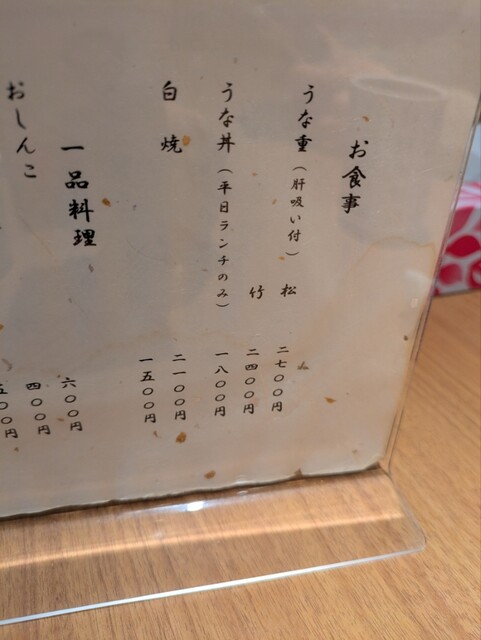 お食事
うな重（肝吸い付） 松 二七〇〇円
竹 二四〇〇円
うな丼（平日ランチのみ） 一八〇〇円
白焼 二一〇〇円
一五〇〇円
一品料理
六〇〇円
おしんこ 四〇〇円
五〇〇円